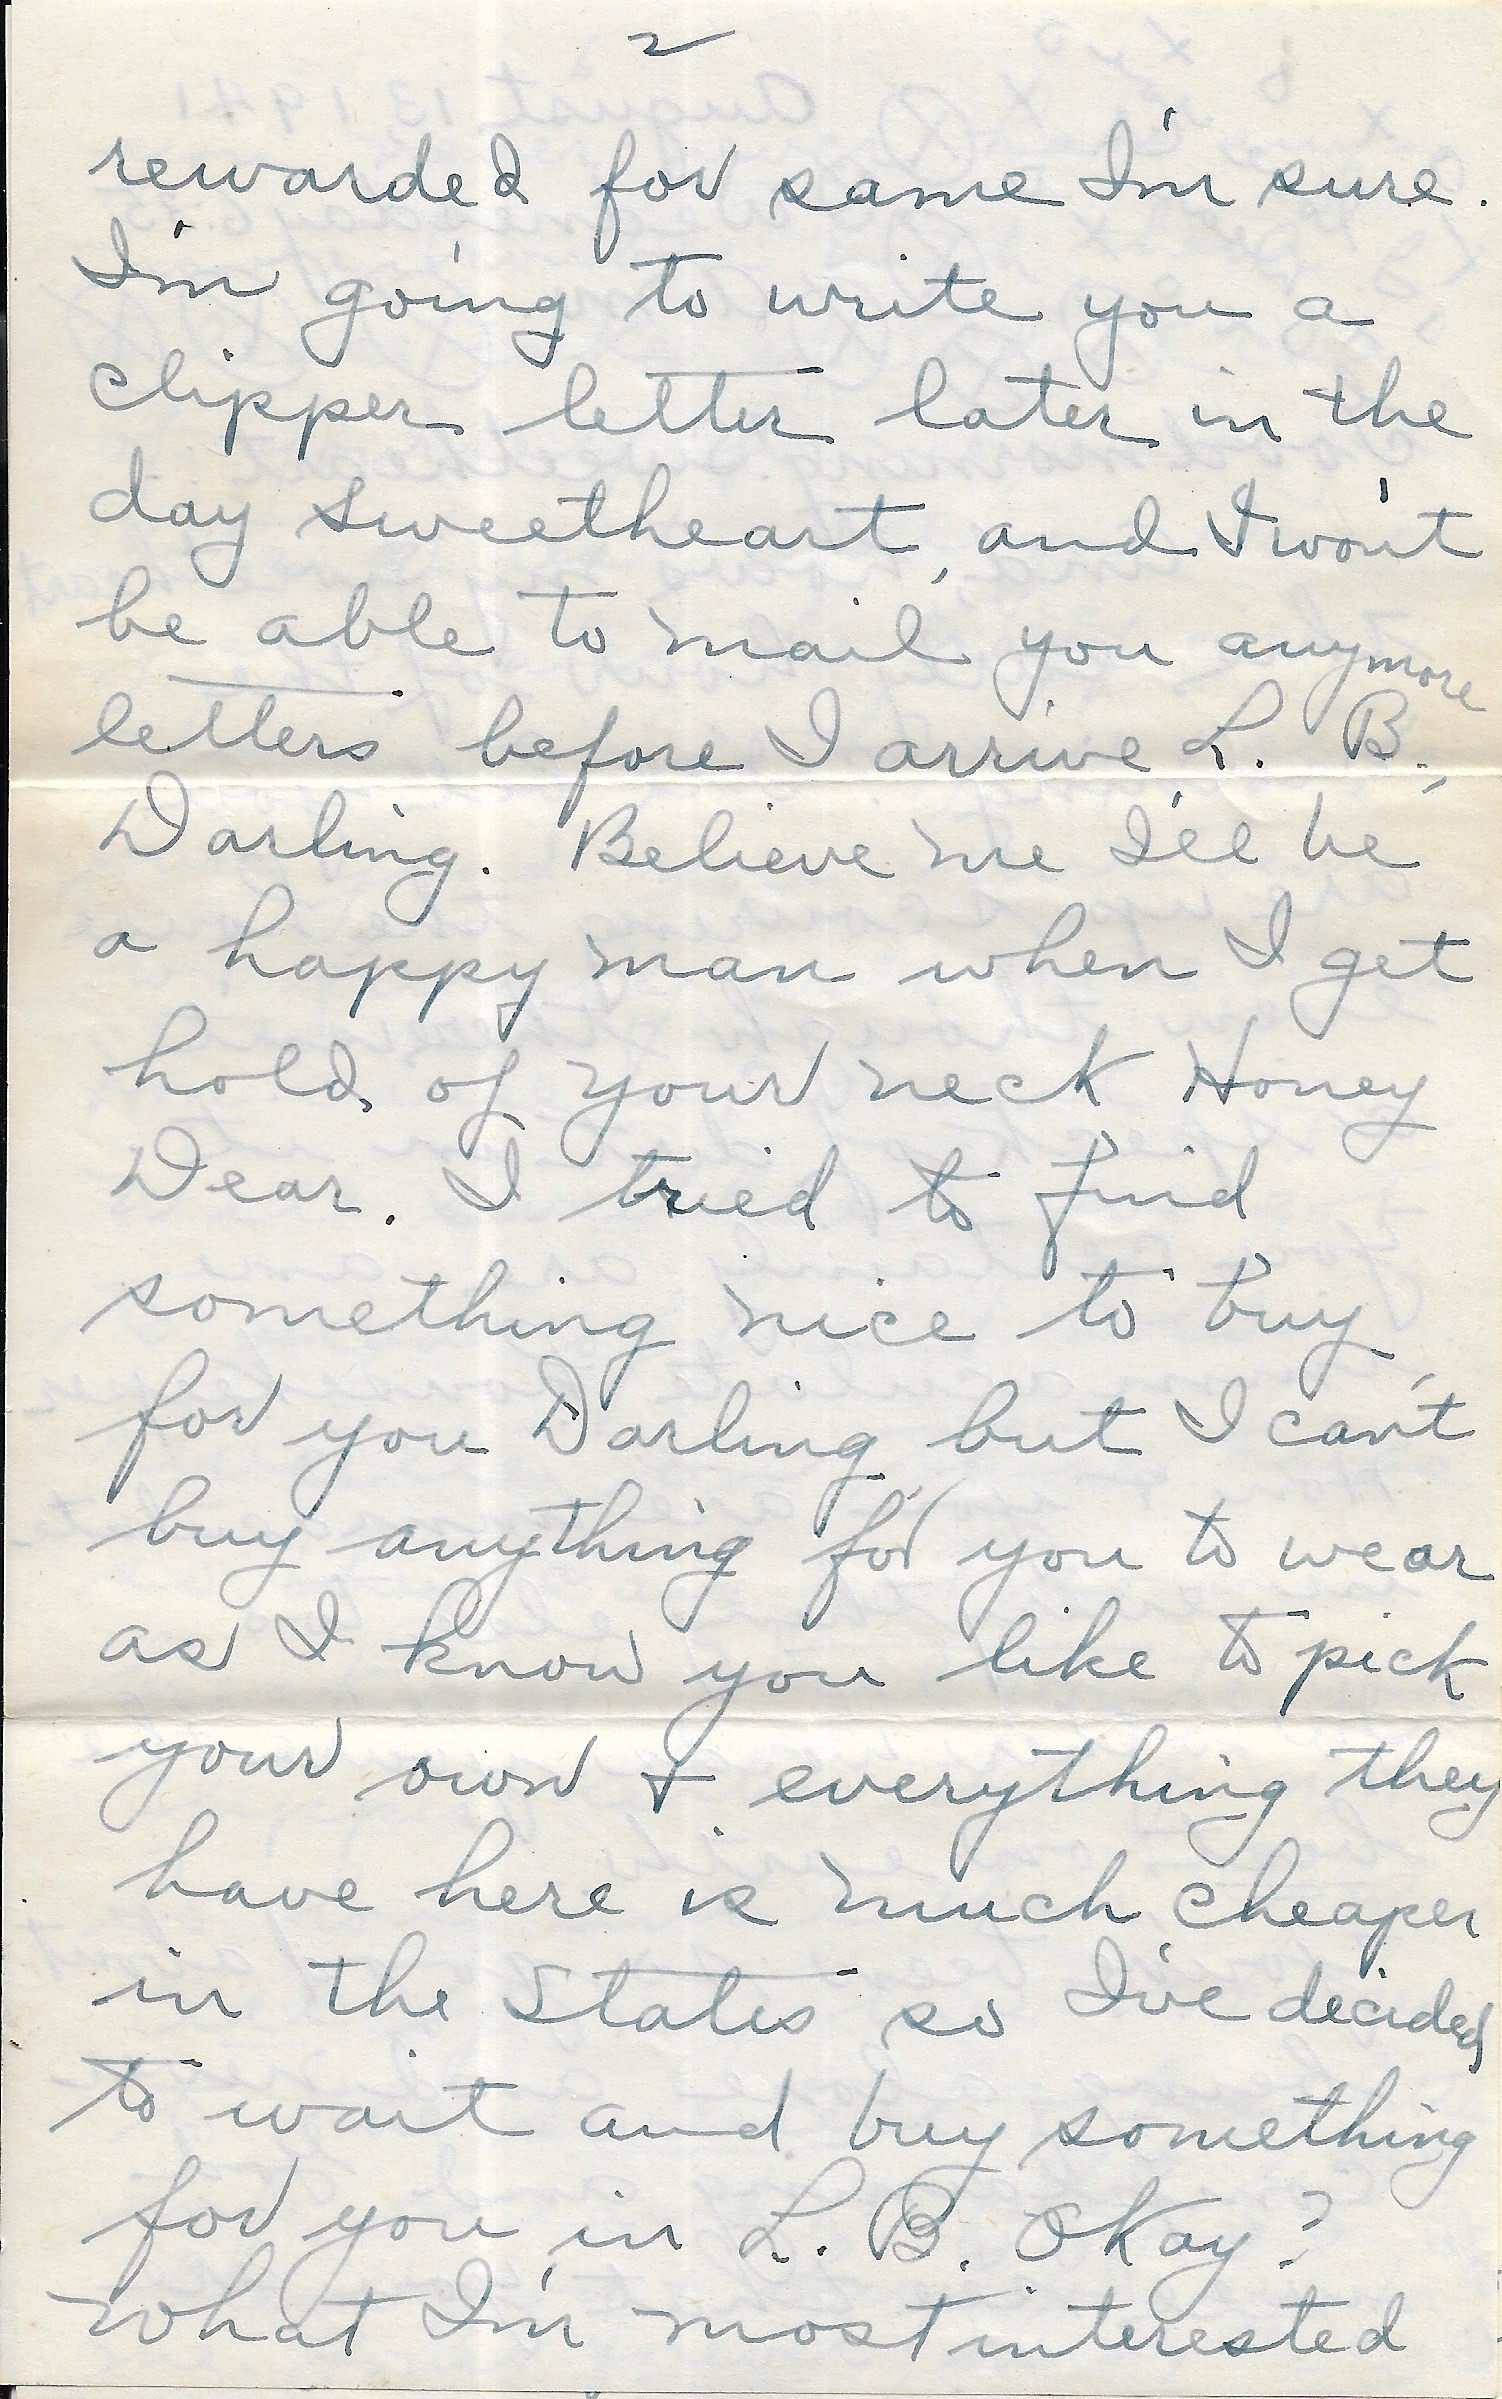 2
rewarded for same I'm sure.
I'm going to write you a
clipper letter later in the
day sweetheart, and I won't
be able to mail you anymore
letters before I arrive L. B.,
Darling. Believe me I'll be
a happy man when I get
hold of your neck Honey
Dear. I tried to find
something nice to buy
for you Darling but I can't
buy anything for you to wear
as I know you like to pick
your own & everything they
have here is much cheaper
in the States so I've decided
to wait and buy something
for you in L. B. Okay?
What I'm most interested